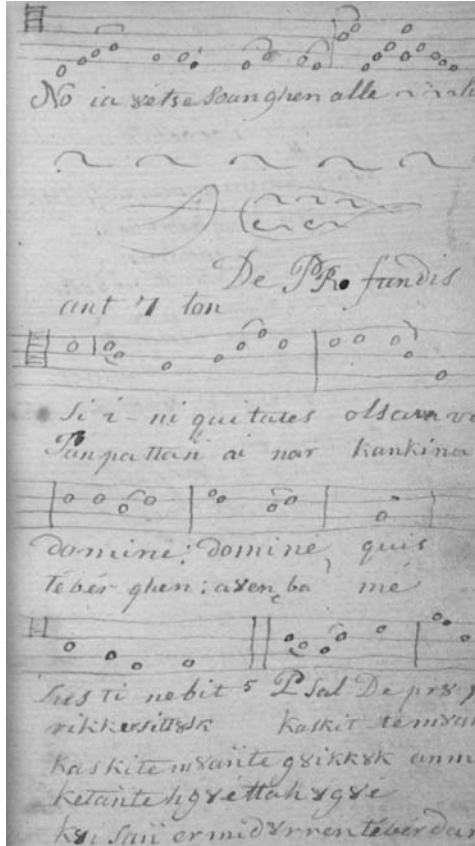 No ia ȣétse Soanghen alle
De PR. fundis
ant 7 ton
Si i - ni quitates observa
Panpattañ ai nar kankina
domine: domine, quis
tébér ghen: aȣen, ba mé
sus ti nebit 5 Psal De prȣ
rikkersittȣsk kaskit témȣa
kaskitemȣañte gȣikkȣk anm
ketañte hgȣéttahȣgȣé
kȣi sañ ermidȣrren tébér da